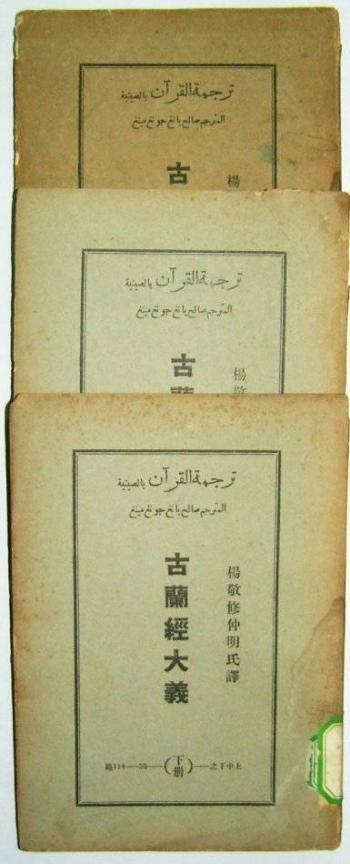 ترجمة القرآن بالصينية
المترجم صالح يانغ جو نغ مينغ
古
楊
ترجمة القرآن بالصينية
المترجم صالح يانغ جو نغ مينغ
古蘭
楊敬
ترجمة القرآن بالصينية
المترجم صالح يانغ جو نغ مينغ
楊敬修仲明氏譯
古蘭經大義
上中下之——(下册)——114